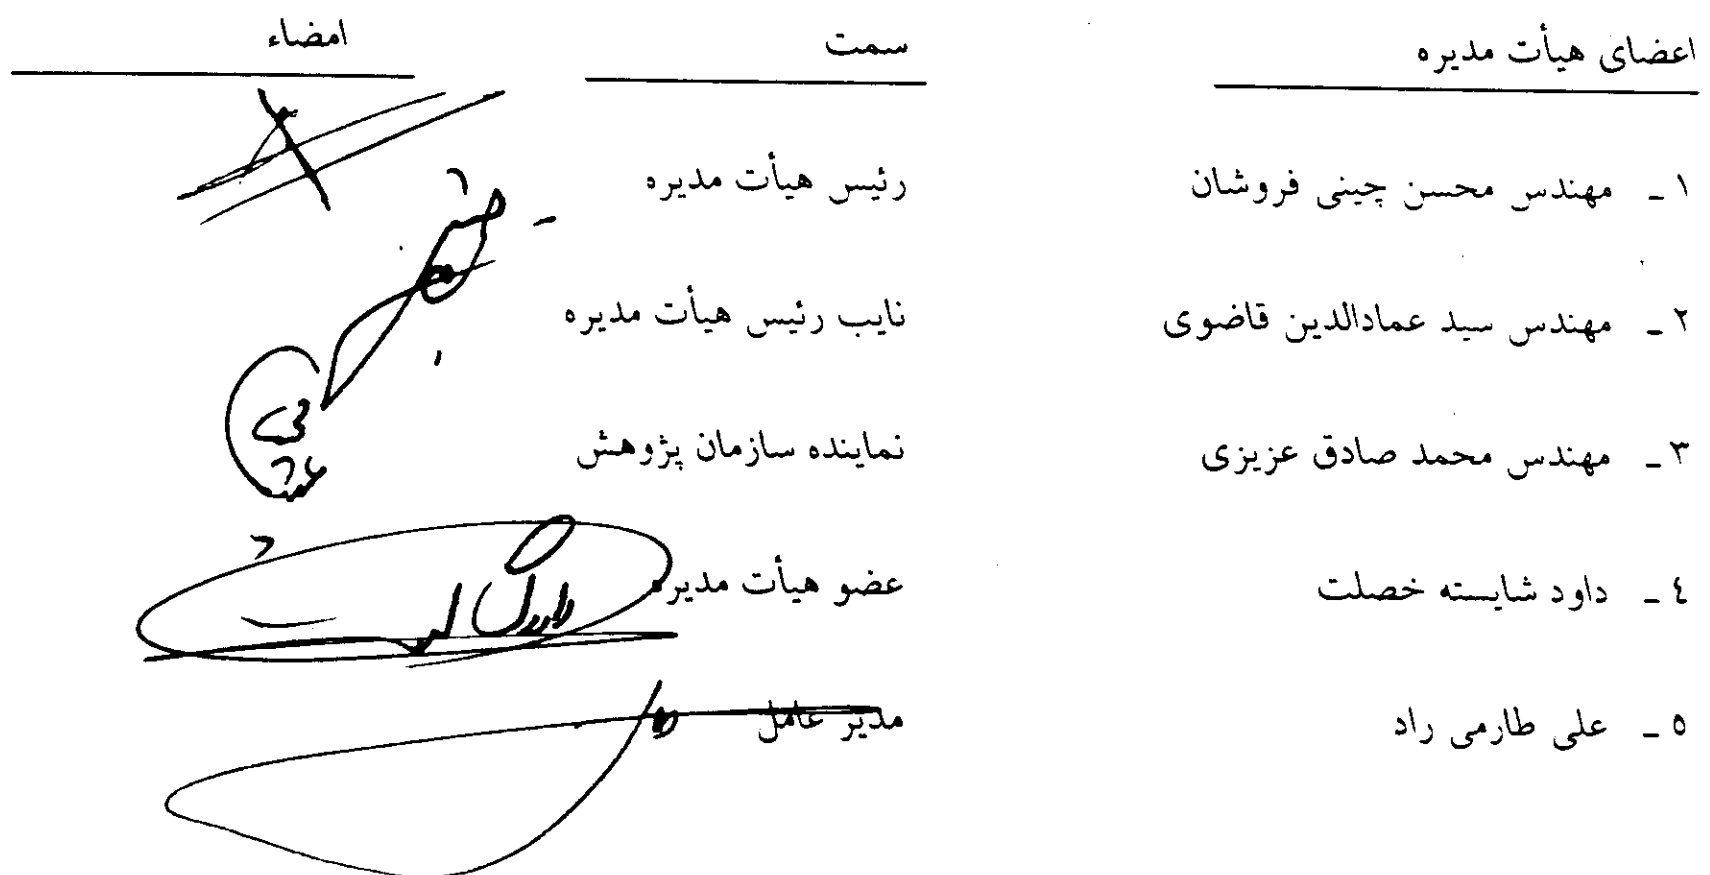 اعضای هیأت مدیره سمت امضاء
١ ـ مهندس محسن چینی فروشان رئیس هیأت مدیره
٢ ـ مهندس سید عمادالدین قاضوی نایب رئیس هیأت مدیره
٣ ـ مهندس محمد صادق عزیزی نماینده سازمان پژوهش
٤ ـ داود شایسته خصلت عضو هیأت مدیره
٥ ـ علی طارمی راد مدیر عامل